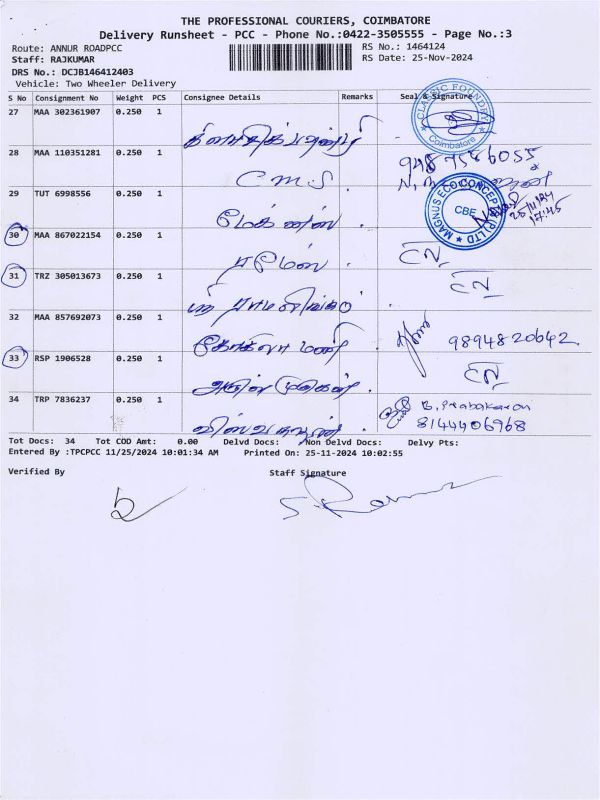 THE PROFESSIONAL COURIERS, COIMBATORE
Delivery Runsheet - PCC - Phone No.:0422-3505555 - Page No.:3
Route: ANNUR ROADPCC
RS No.: 1464124
Staff: RAJKUMAR
RS Date: 25-Nov-2024
DRS No.: DCJB146412403
Vehicle: Two Wheeler Delivery
S No Consignment No Weight PCS Consignee Details Remarks Seal & Signature
27 MAA 302361907 0.250 1
CLASSIC FOUNDRY
Coimbatore
28 MAA 110351281 0.250 1 C.M.S. 9487586055
29 TUT 6998556 0.250 1
MAGNUS ECO CONCEPT (P) LTD
CBE
25/11/24
17:45
30 MAA 867022154 0.250 1 ரமேஸ்
31 TRZ 305013673 0.250 1
32 MAA 857692073 0.250 1 கோகிலா மணி 9894820642
33 RSP 1906528 0.250 1
34 TRP 7836237 0.250 1 B. Prabakaran
8144406968
Tot Docs: 34 Tot COD Amt: 0.00 Delvd Docs: Non Delvd Docs: Delvy Pts:
Entered By :TPCPCC 11/25/2024 10:01:34 AM Printed On: 25-11-2024 10:02:55
Verified By Staff Signature